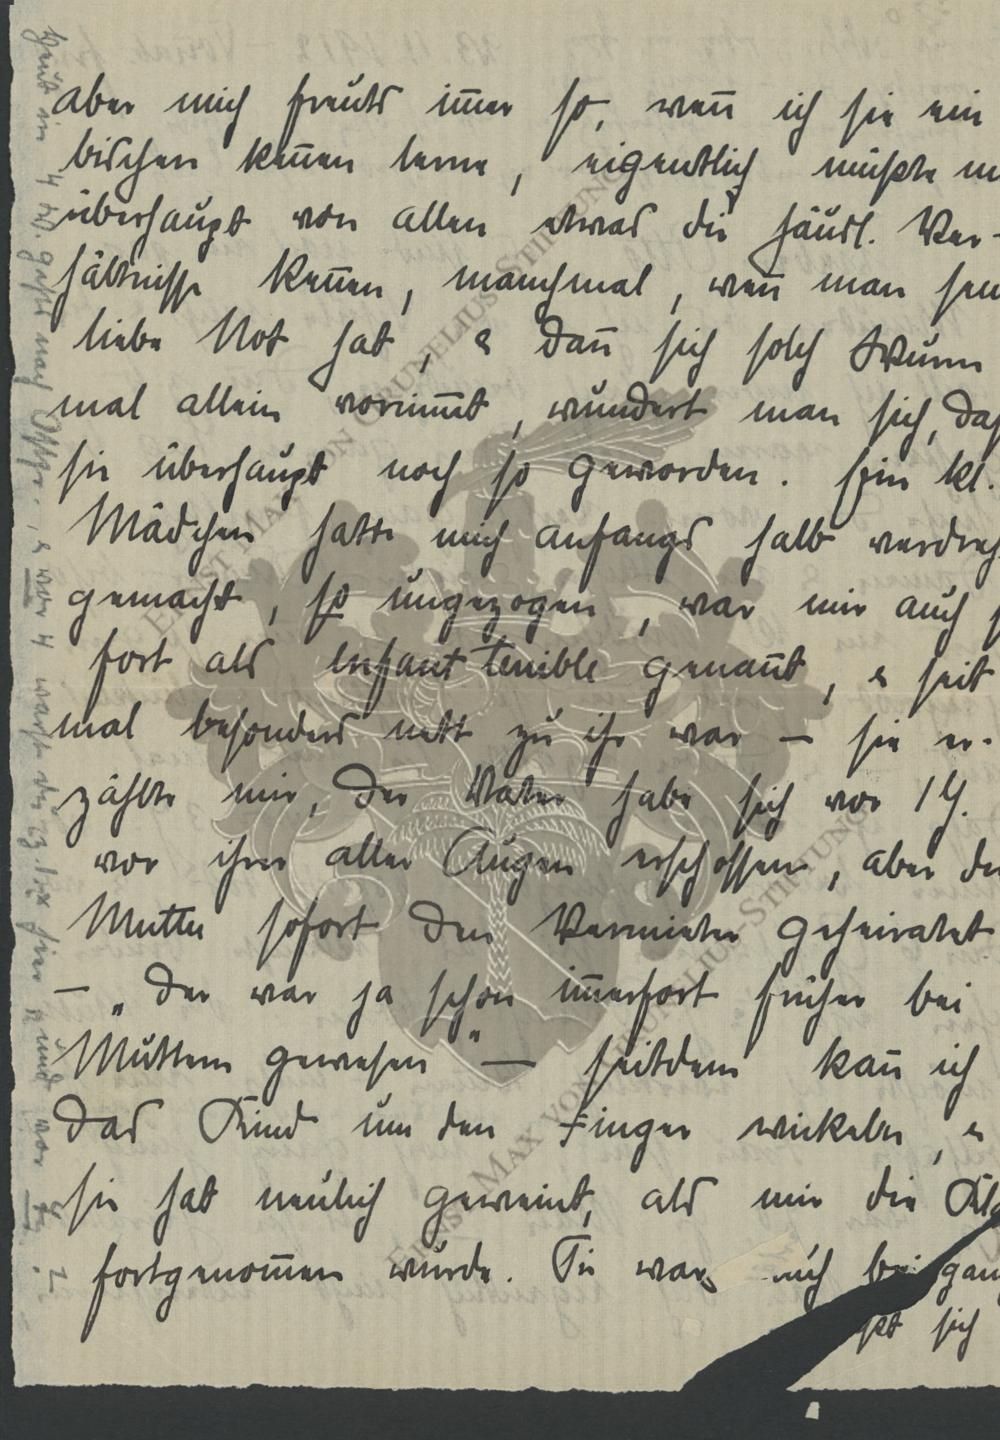 aber mich freuts im̅er so, wen̅ ich sie ein
bischen ken̅en lerne, eigentlich müßte m
überhaupt von allen etwas die häusl. Ver-
hältnisse ken̅en, manchmal, wen̅ man sein
liebe Not hat, & dan̅ sich solch Wurm
mal allein vornim̅t, wundert man sich, daß
sie überhaupt noch so geworden. Ein kl.
Mädchen hatte mich anfangs halb verdreh
gemacht, so ungezogen, war mir auch s
fort als enfant terrible genan̅t, & seit
mal besonders nett zu ihr war — sie er-
zählte mir, der Vater habe sich vor 1 J.
vor ihrer aller Augen erschossen, aber die
Mutter sofort den Vermieter geheiratet
— „der war ja schon im̅erfort früher bei
Muttern gewesen" — seitdem kan̅ ich
das Kind um den Finger wickeln, &
sie hat neulich geweint, als mir die Kla
fortgenom̅en wurde. Sie war bei gan
sich